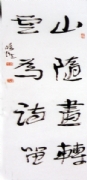 山隨畫轉
雲為詩留